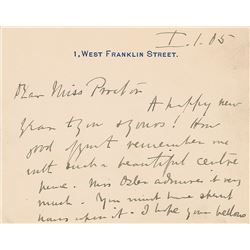 I.1.05
1, WEST FRANKLIN STREET.
Dear Miss Proctor
A happy new
year to you & yours! How
good of you to remember me
with such a beautiful centre
piece. Mrs Osler admires it very
much. You must have spent
hours upon it. I hope your